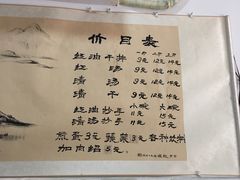 价目表
一两 二两 三两
红油干拌 9元 12元 14元
红汤 9元 12元 14元
清汤 9元 12元 14元
清干 9元 12元 14元
小碗 大碗
红油抄手 11元 15元
清汤抄手 11元 15元
煎蛋3元 蔬菜3元 各种饮料
加肉绍5元